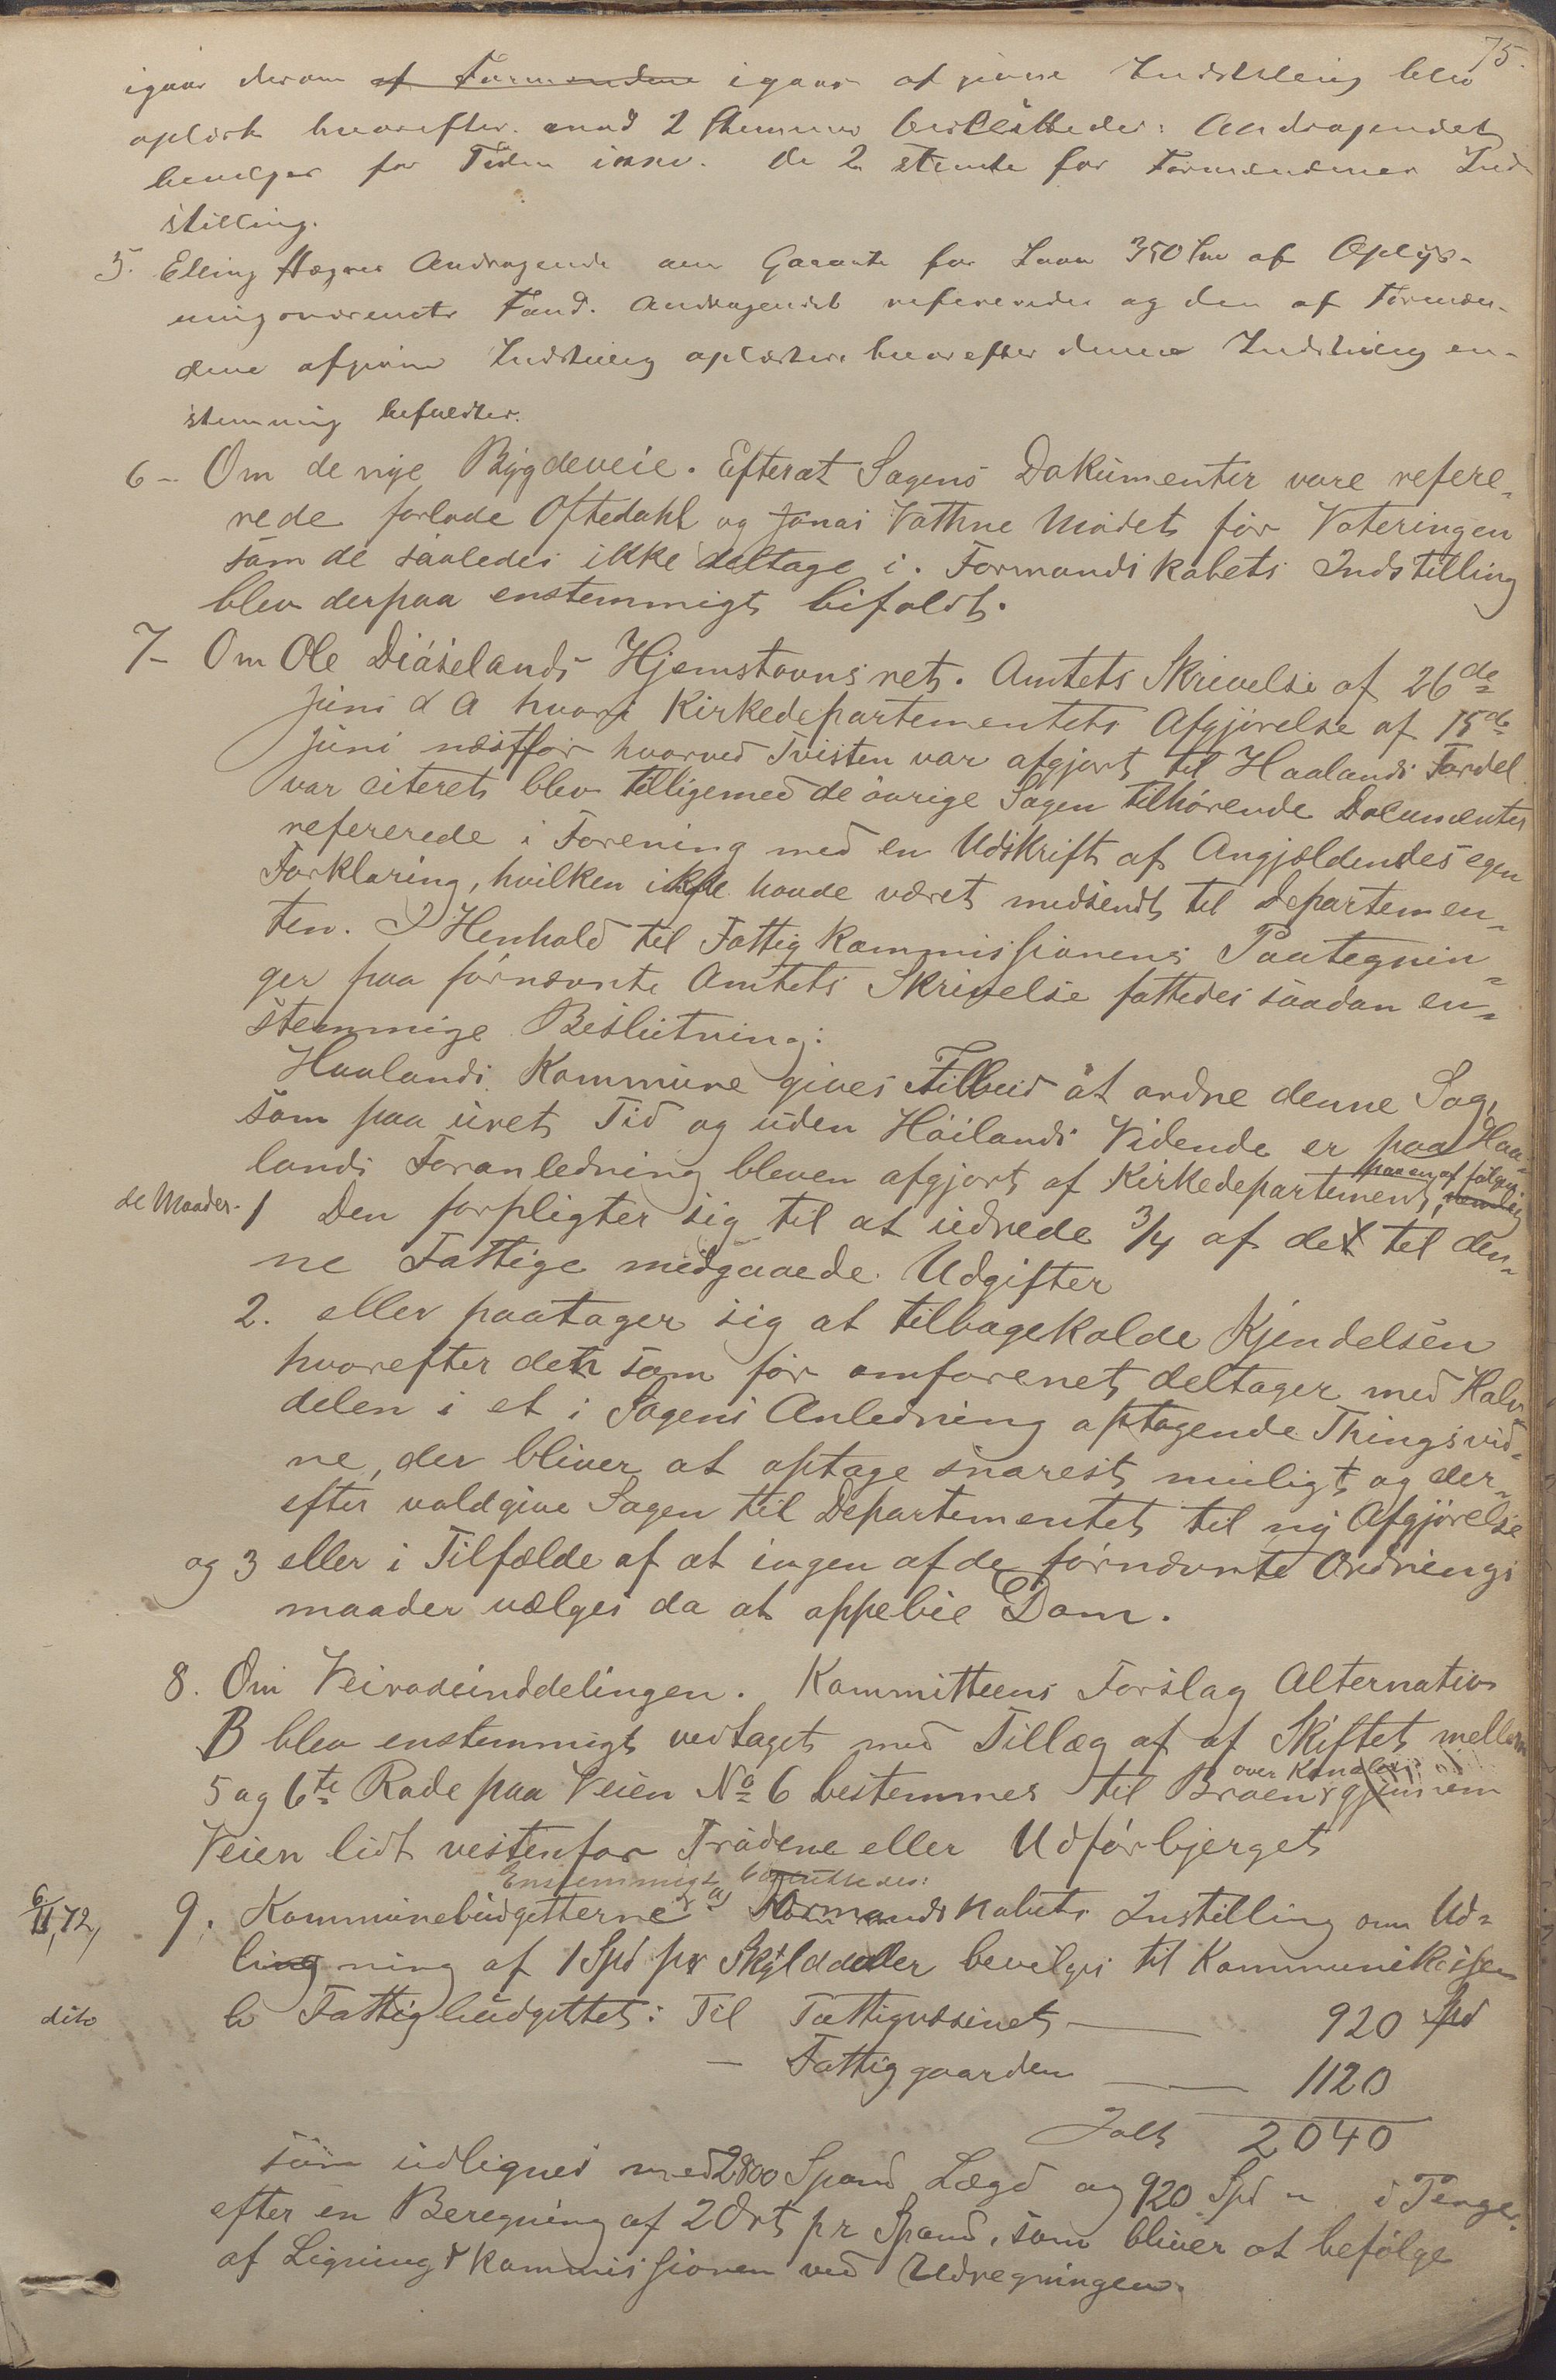 75.
igaar derom af Formændene igaar afgivne Indstilling blev
oplæst hvorefter mod 2 Stemmer besluttedes: Andragendet
bevilges for Tiden ikke. De 2 stemte for Formændenes Ind-
stilling.
5. Elling Andragende om Garanti for Laan 350 Spd af Oplys-
ningsvæsenets Fond. Andragendet refereredes og den af Formæn-
dene afgivne Indstilling oplæstes hvorefter denne Indstilling en-
stemmig bifaldtes.
6 - Om de nye Bygdeveie. Efterat Sagens Dokumenter vare refere-
rede forlode Oftedahl og Jonas Vathne Mødet før Voteringen
som de saaledes ikke deltage i. Formandskabets Indstilling
blev derpaa enstemmigt bifaldt.
7 - Om Ole Hjemstavnsret. Amtets Skrivelse af 26de
Juni d A hvori Kirkedepartementets Afgjørelse af 15de
Juni næstfør hvorved Tvisten var afgjort til Haalands Fordel
var citeret blev tilligemed de øvrige Sagen tilhørende Documenter
refererede i Forening med en Udskrift af Angjældendes egen
Forklaring, hvilken ikke havde været medsendt til Departemen-
ten. I Henhold til Fattigkommissionens Paategnin-
ger paa førnævnte Amtets Skrivelse fattedes saadan en-
stemmige Beslutning:
Haalands Kommune gives Tilbud at ordne denne Sag,
som paa uret Tid og uden Høilands Vidende er paa Haa-
lands Foranledning bleven afgjort af Kirkedepartement, nemlig
paa en af følgen-
de Maader. 1 Den forpligter sig til at udrede 3/4 af det til den-
ne Fattige medgaaede Udgifter
2. eller paatager sig at tilbagekalde Kjendelsen
hvorefter den som før omforenet deltager med Halv-
delen i et i Sagens Anledning optagende Thingsvid-
ne, der bliver at optage snarest muligt og der-
efter voldgive Sagen til Departementet til ny Afgjørelse
og 3 eller i Tilfælde af at ingen af de førnævnte Ordnings
maader vælges da at oppebie Dom.
8. Om Veirodeinddelingen. Kommitteens Forslag Alternativ
B blev enstemmigt vedtaget med Tillæg af at Skiftet mellem
5 og 6te Rode paa Veien No 6 bestemmes til Broen gjennem
over Kanalen
Veien lidt vestenfor Trådene eller Udførbjerget
Enstemmigt besluttedes:
6/11, 72, 9. Kommunebudgetterne a) Formandskabets Instilling om Ud-
ligning af 1 Spd pr Skylddaler bevilges til Kommunekassen
dito b Fattigbudgettet: Til Fattigvæsenet 920 Spd
— Fattiggaarden 1120
Ialt 2040
som udlignes med 2800 Spand Lægd og 920 Spd i Penge
efter en Beregning af 2 Ort pr Spand, som bliver at befølge
af Lignings kommissionen ved Udregningen.